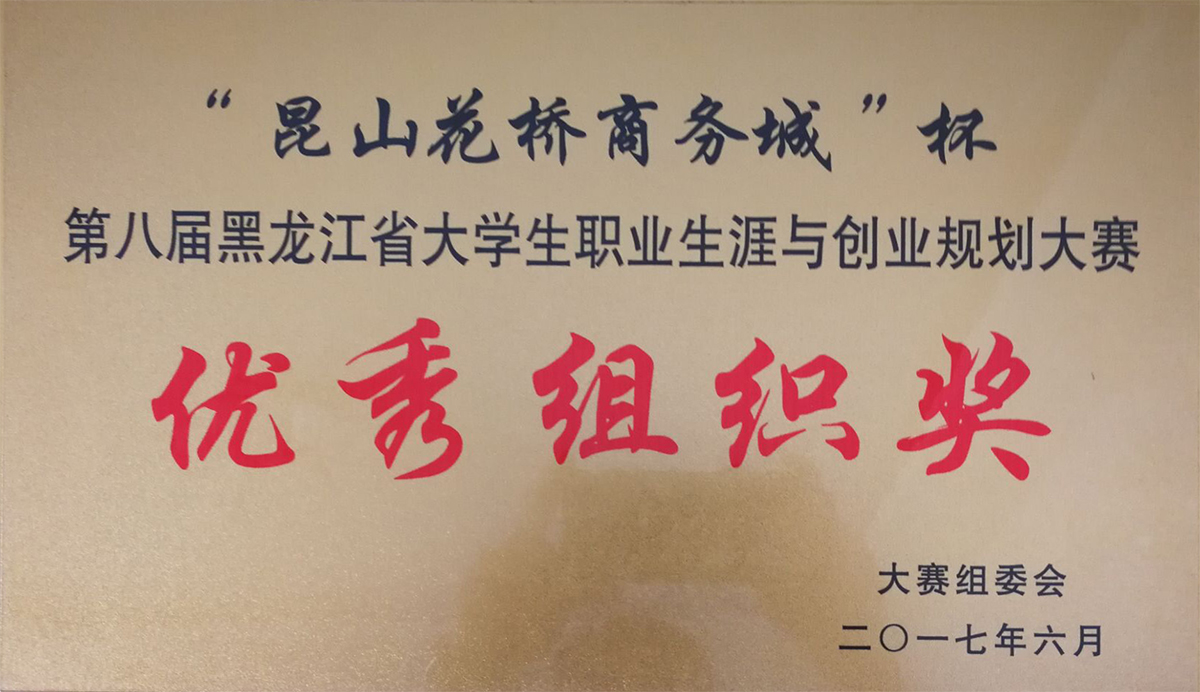 “昆山花桥商务城”杯
第八届黑龙江省大学生职业生涯与创业规划大赛
优秀组织奖
大赛组委会
二〇一七年六月